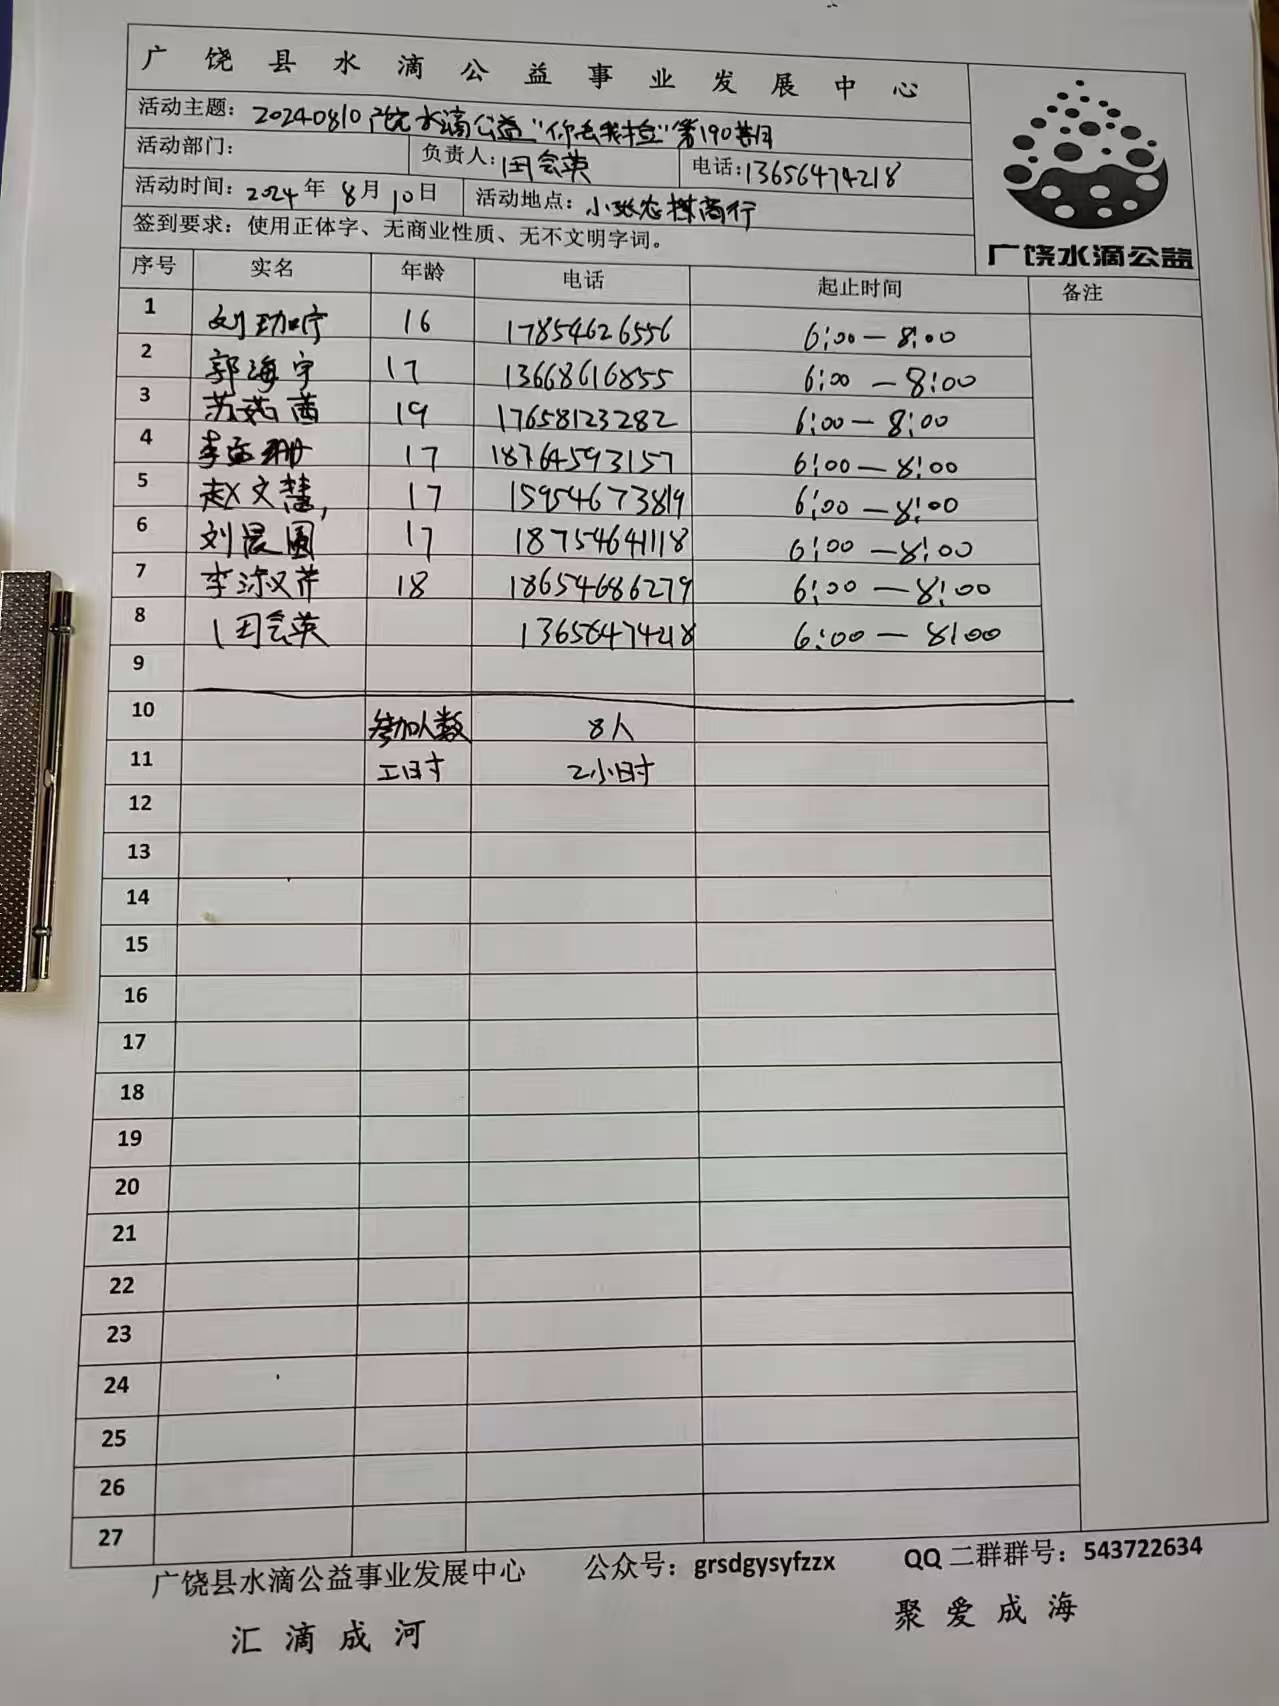 广饶县水滴公益事业发展中心
活动主题：20240810广饶水滴公益"你丢我捡"第190期
活动部门： 负责人：田会英 电话：13656474218
活动时间：2024年8月10日 活动地点：小张农村商行
签到要求：使用正体字、无商业性质、无不文明字词。
广饶水滴公益
序号 实名 年龄 电话 起止时间 备注
1 刘珈宁 16 17854626556 6:00—8:00
2 郭海宇 17 13668616855 6:00—8:00
3 苏茜 19 17658123282 6:00—8:00
4 李孟珊 17 18764593157 6:00—8:00
5 赵文慧 17 15954673819 6:00—8:00
6 刘晨圆 17 18754641118 6:00—8:00
7 李 18 18654686279 6:00—8:00
8 田会英 13656474218 6:00—8:00
9
10 参加人数 8人
11 工时 2小时
12
13
14
15
16
17
18
19
20
21
22
23
24
25
26
27
广饶县水滴公益事业发展中心 公众号：grsdgysyfzzx QQ二群群号：543722634
汇滴成河 聚爱成海